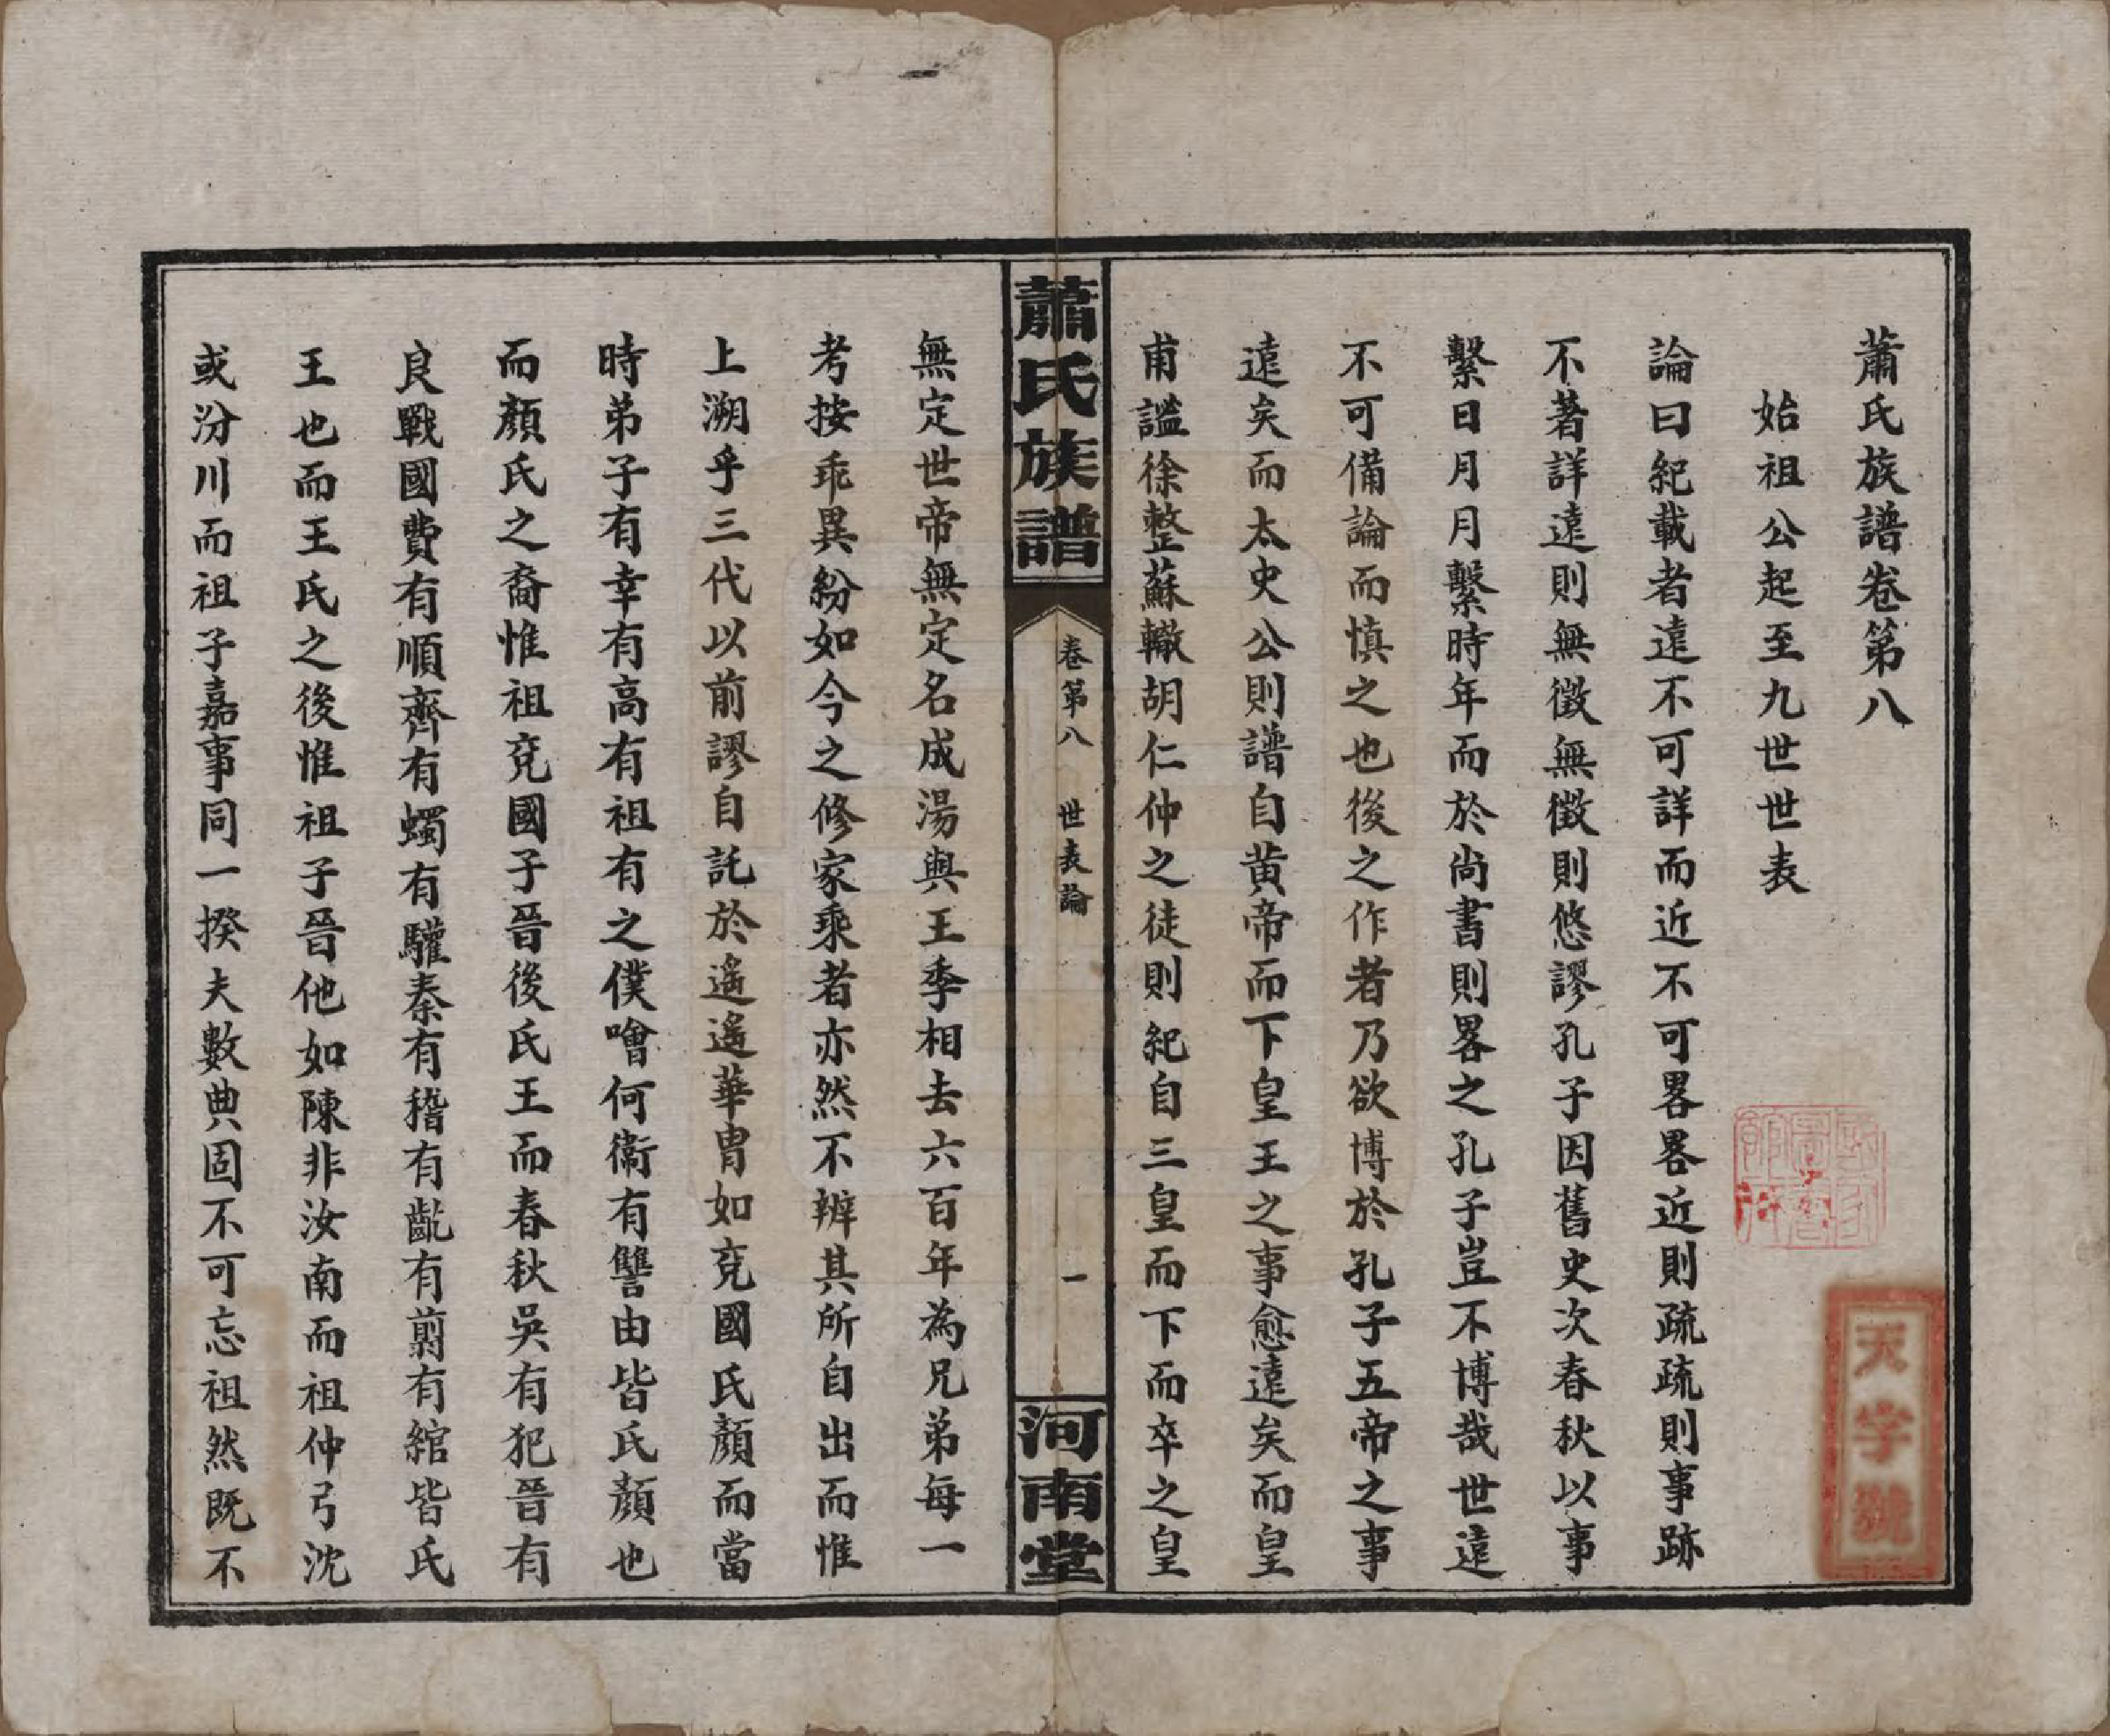 蕭氏族譜卷第八
始祖公起至九世世表
論曰紀載者遠不可詳而近不可畧畧近則疏疏則事跡
不著詳遠則無徵無徵則悠謬孔子因舊史次春秋以事
繫日月月繫時年而於尚書則畧之孔子豈不博哉世遠
不可備論而慎之也後之作者乃欲博於孔子五帝之事
遠矣而太史公則譜自黃帝而下皇王之事愈遠矣而皇
甫謐徐整蘇轍胡仁仲之徒則紀自三皇而下而卒之皇
蕭氏族譜
卷第八
世表論
一
河南堂
無定世帝無定名成湯與王季相去六百年為兄弟每一
考按乖異紛如今之修家乘者亦然不辨其所自出而惟
上溯乎三代以前謬自託於遙遙華胄如兗國氏顏而當
時弟子有幸有高有祖有之僕噲何衞有讐由皆氏顏也
而顏氏之裔惟祖兗國子晉後氏王而春秋吳有犯晉有
良戰國費有順齊有蠋有驩秦有稽有齕有翦有綰皆氏
王也而王氏之後惟祖子晉他如陳非汝南而祖仲弓沈
或汾川而祖子嘉事同一揆夫數典固不可忘祖然既不
天字號